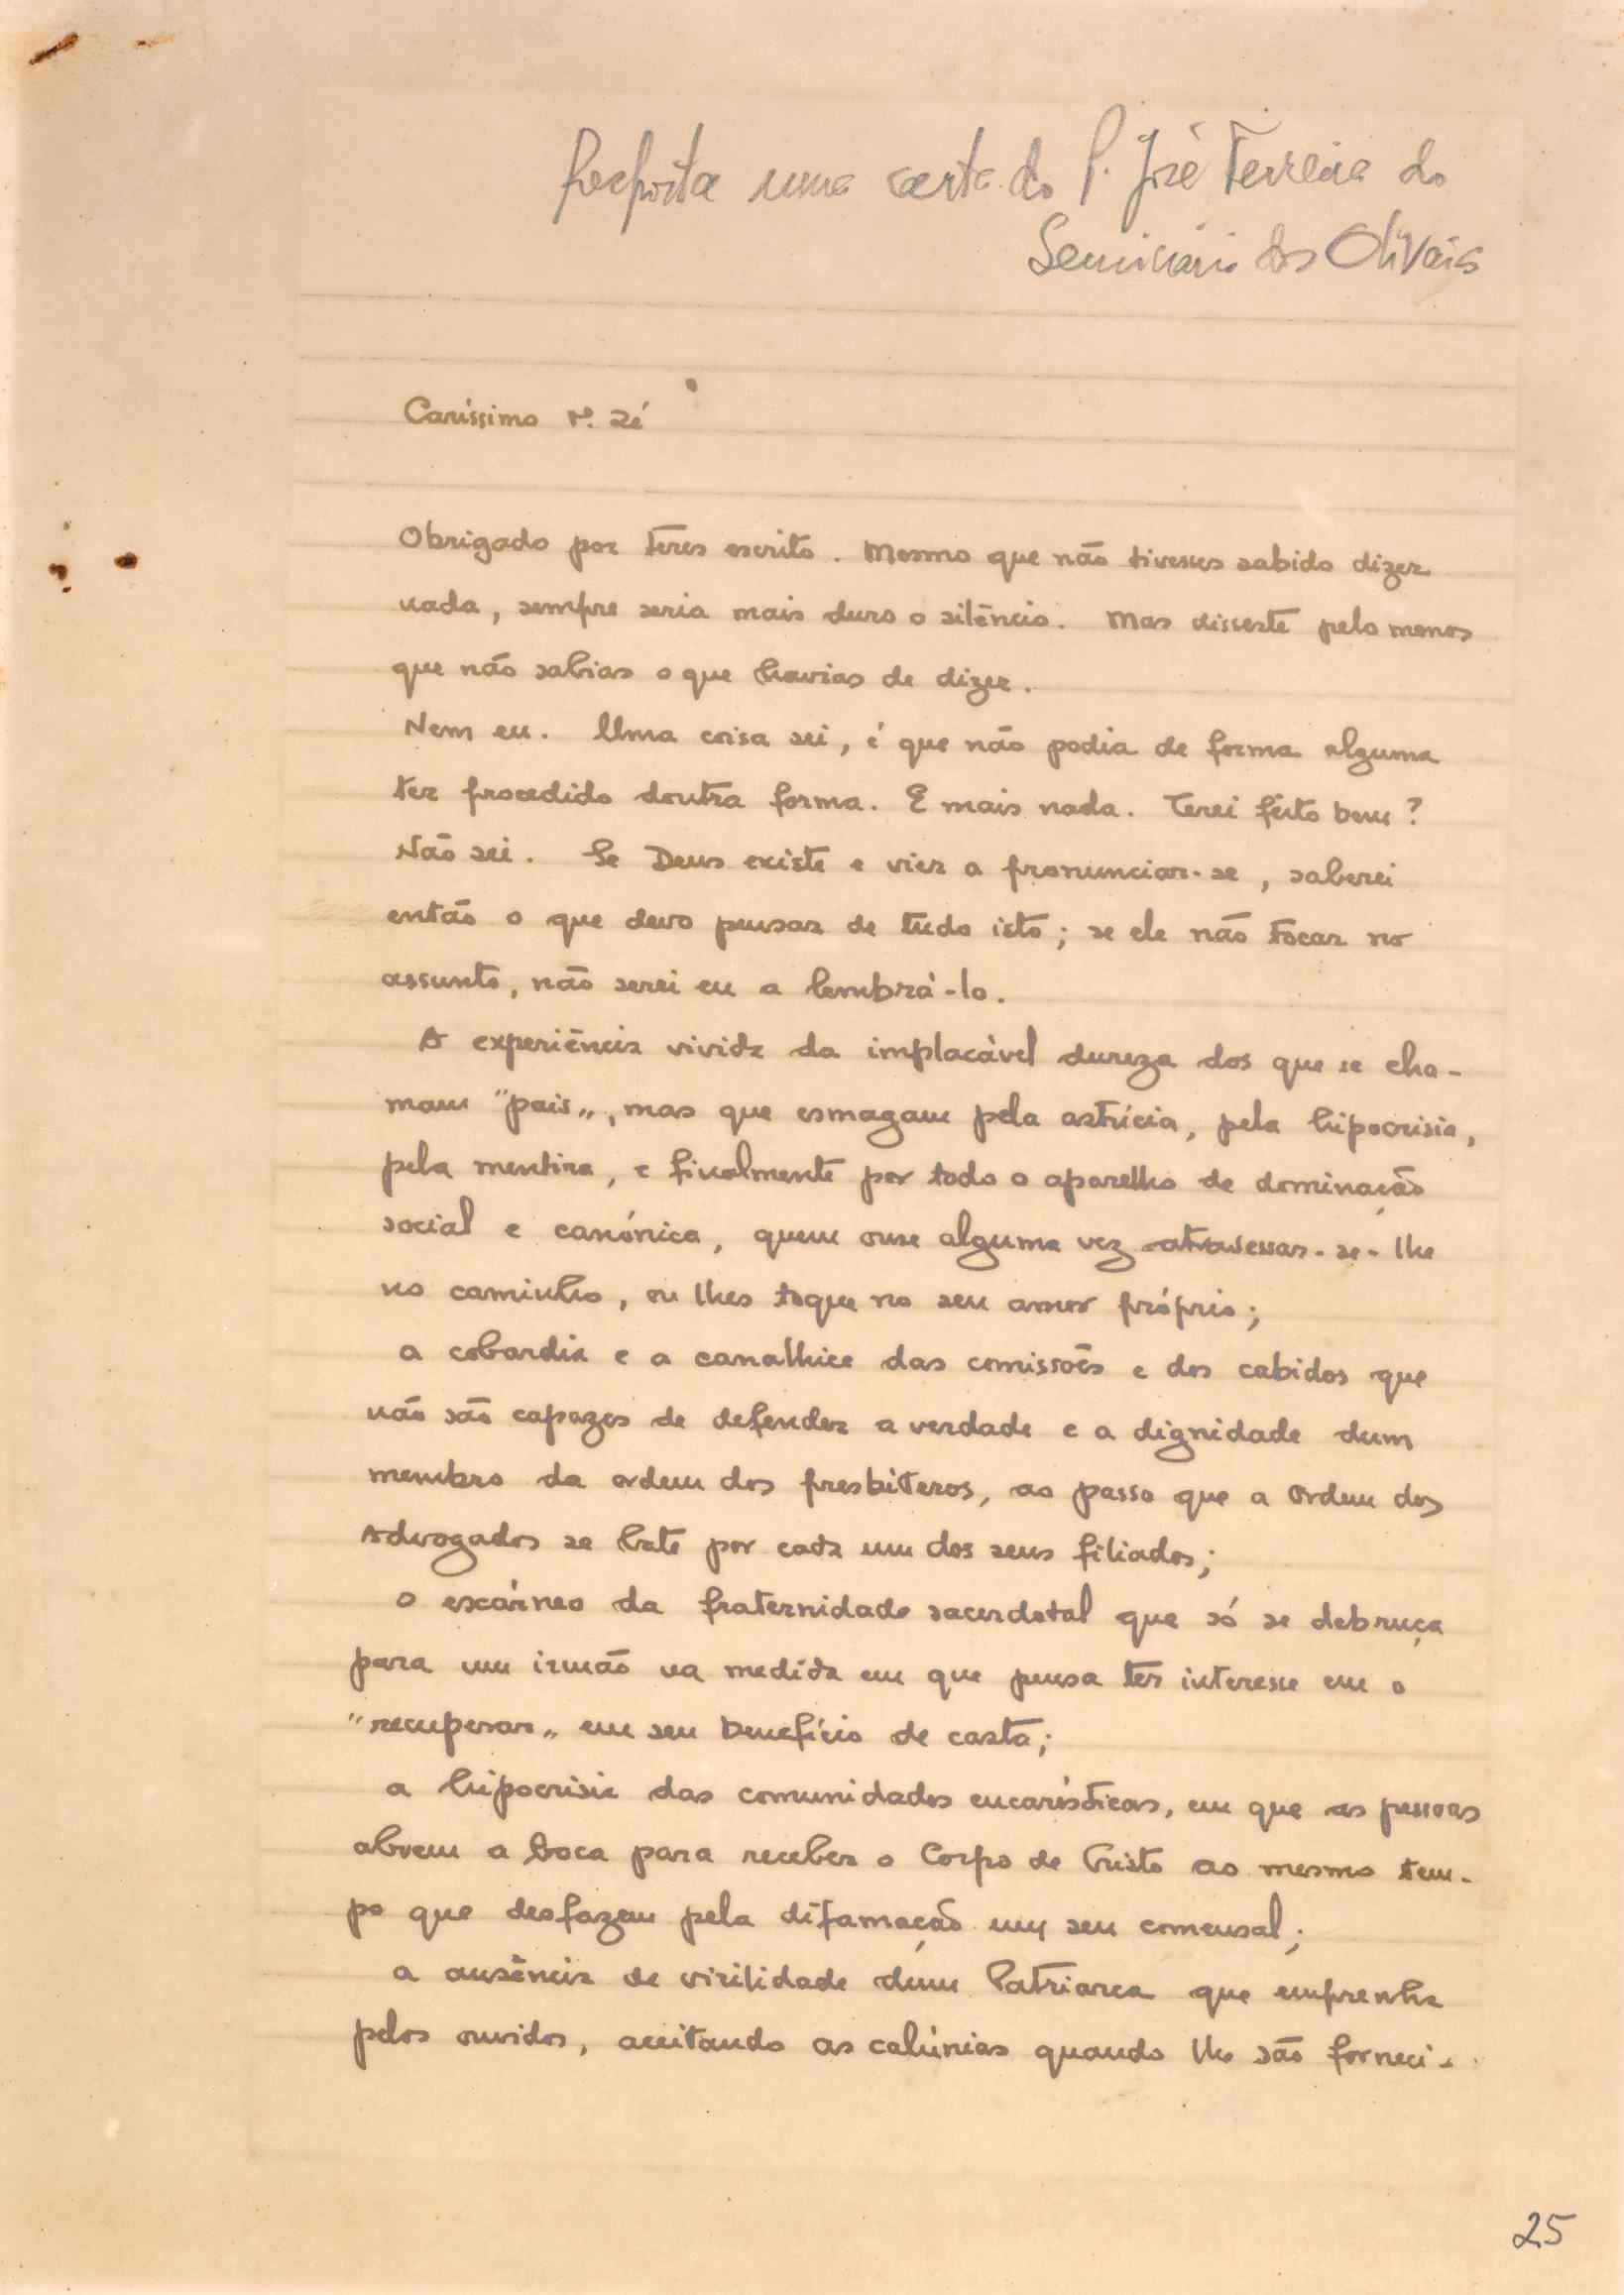 Resposta uma carta do P. José Ferreira do
Seminário dos Olivais
Caríssimo P. Zé
Obrigado por teres escrito. Mesmo que não tivesses sabido dizer
nada, sempre seria mais duro o silêncio. Mas disseste pelo menos
que não sabias o que havias de dizer.
Nem eu. Uma coisa sei, é que não podia de forma alguma
ter procedido doutra forma. E mais nada. Terei feito bem?
Não sei. Se Deus existe e vier a pronunciar-se, saberei
então o que devo pensar de tudo isto; se ele não tocar no
assunto, não serei eu a lembrá-lo.
A experiência vivida da implacável dureza dos que se cha-
mam "pais", mas que esmagam pela astúcia, pela hipocrisia,
pela mentira, e finalmente por todo o aparelho de dominação
social e canónica, quem ouse alguma vez atravessar-se-lhe
no caminho, ou lhes toque no seu amor próprio;
a cobardia e a canalhice das comissões e dos cabidos que
não são capazes de defender a verdade e a dignidade dum
membro da ordem dos presbíteros, ao passo que a Ordem dos
Advogados se bate por cada um dos seus filiados;
o escárneo da fraternidade sacerdotal que só se debruça
para um irmão na medida em que pensa ter interesse em o
"recuperar" em seu benefício de casta;
a hipocrisia das comunidades eucarísticas, em que as pessoas
abrem a boca para receber o Corpo de Cristo ao mesmo tem-
po que desfazem pela difamação um seu comensal;
a ausência de virilidade dum Patriarca que emprenha
pelos ouvidos, aceitando as calúnias quando lhe são forneci-
25